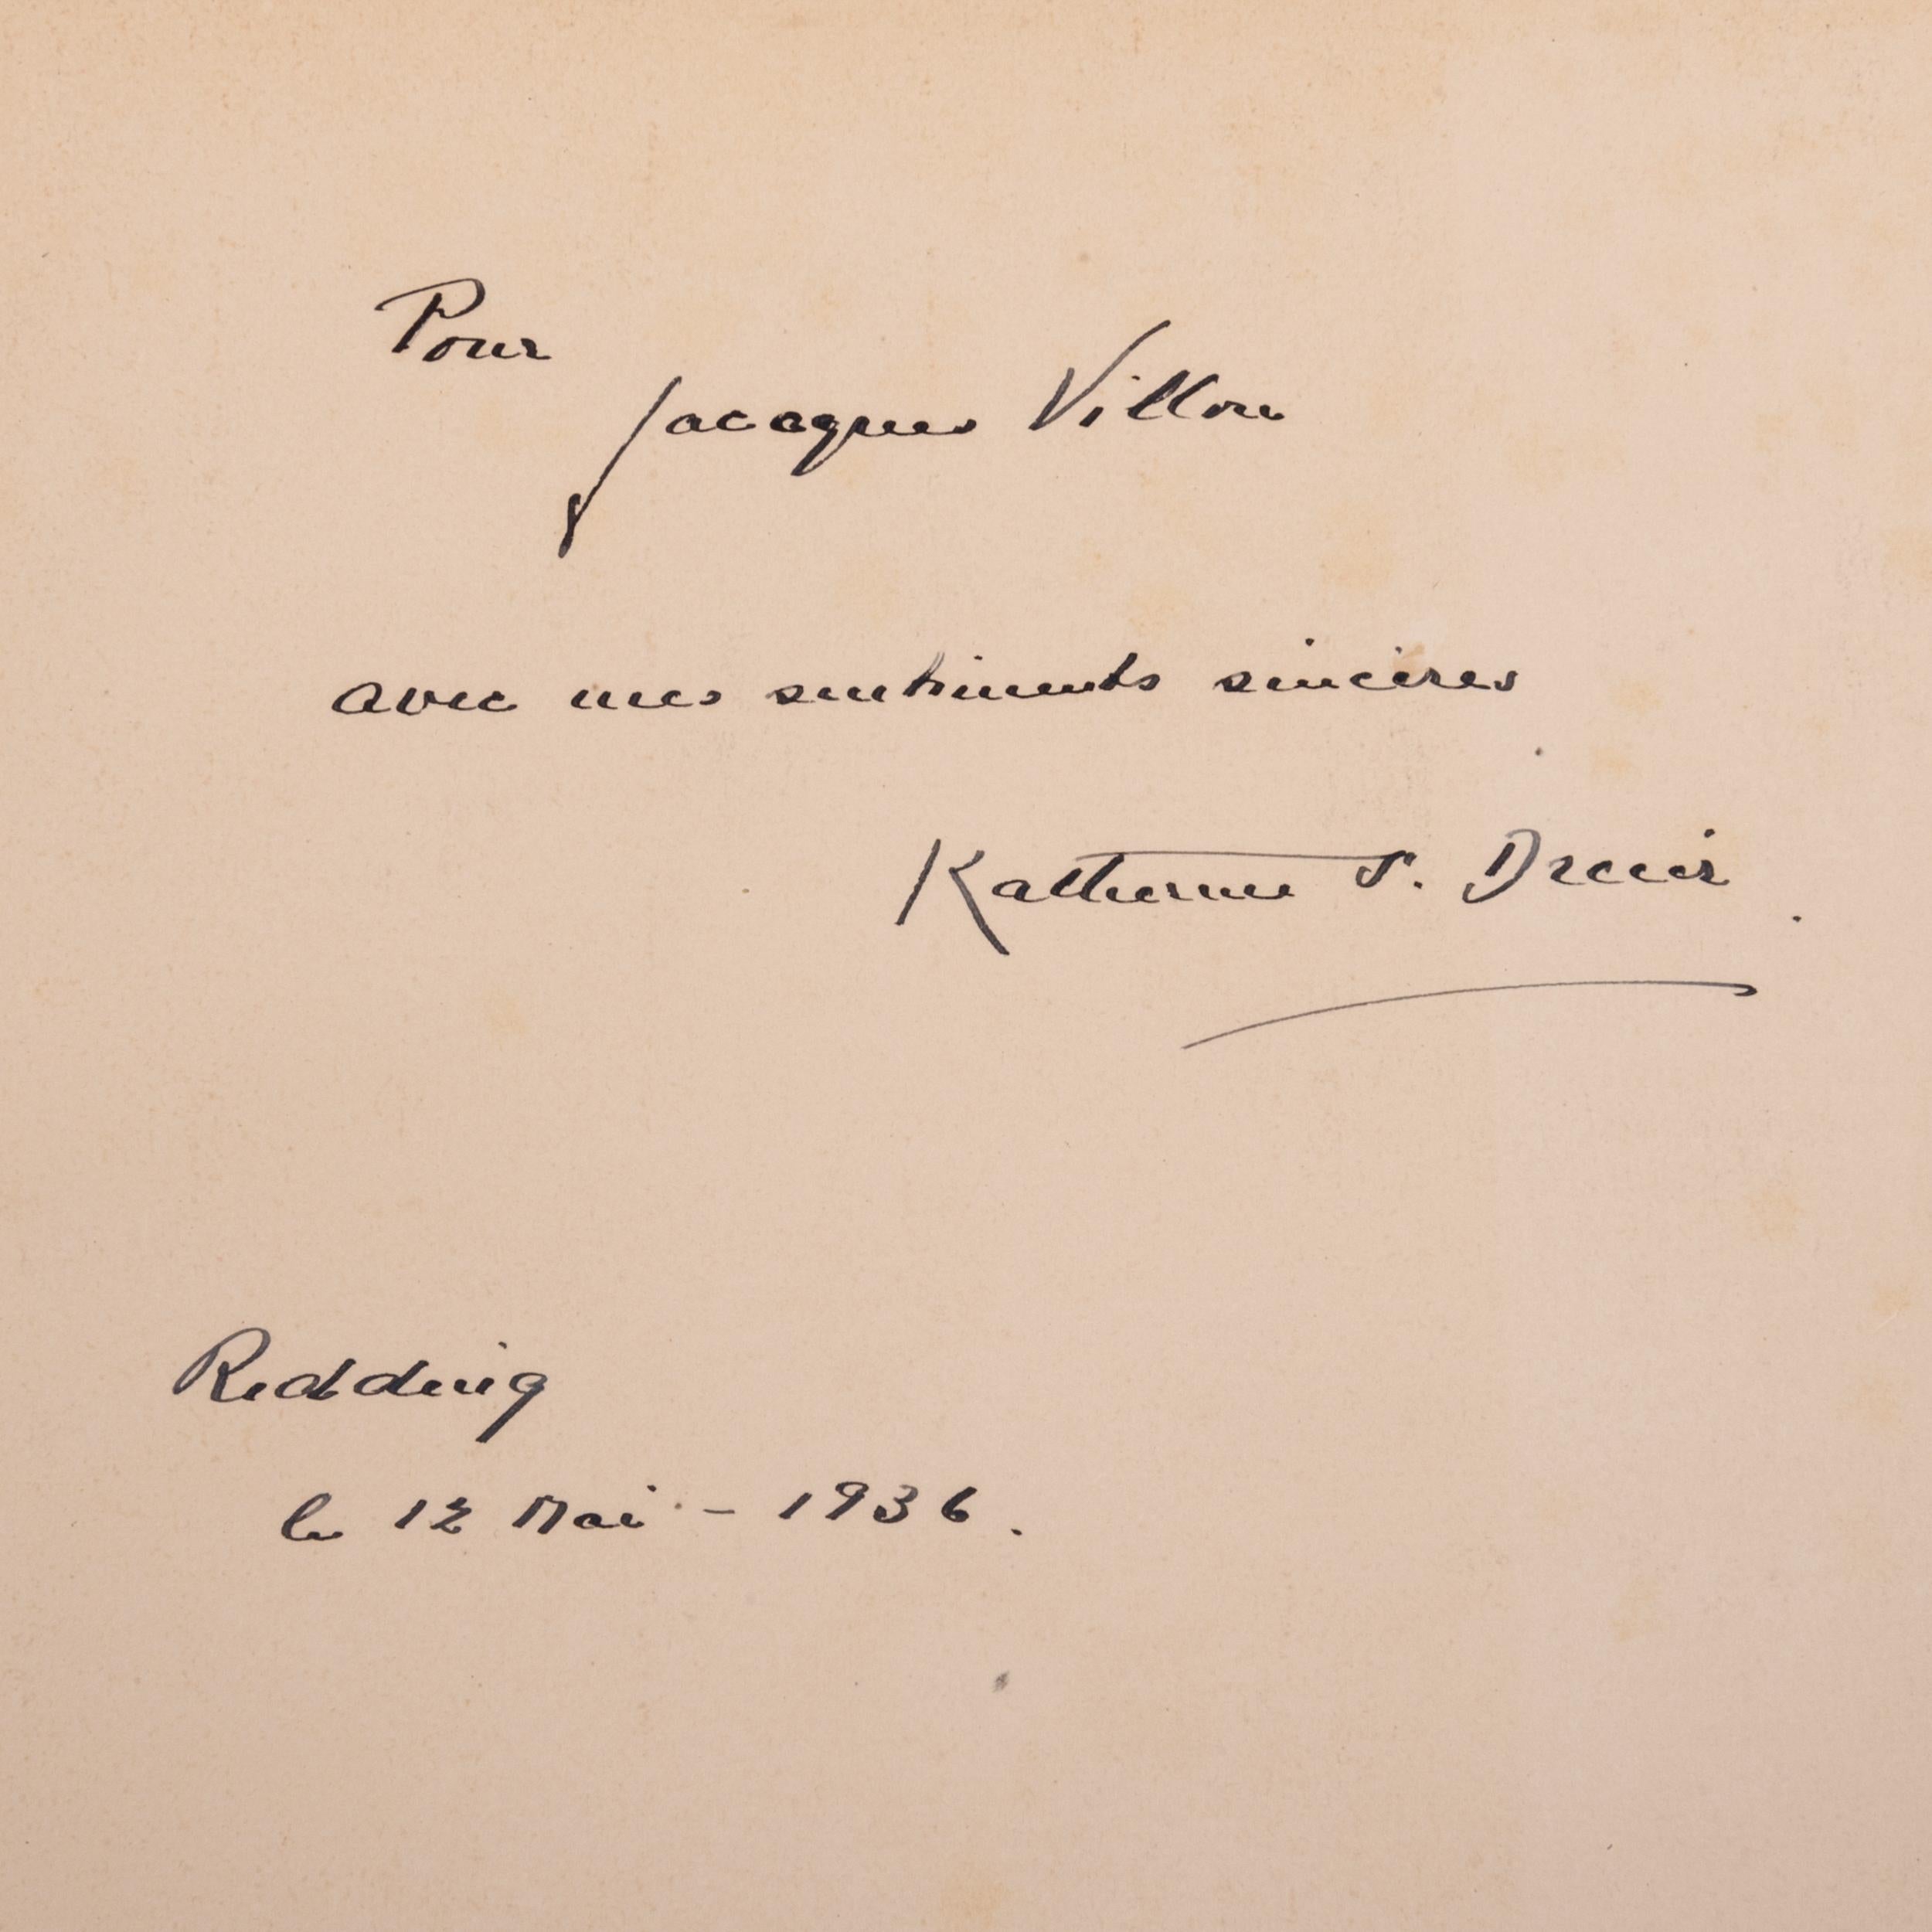 Pour
Jacques Villon
avec mes sentiments sincères
Katherine S. Dreier
Redding
le 12 Mai - 1936.